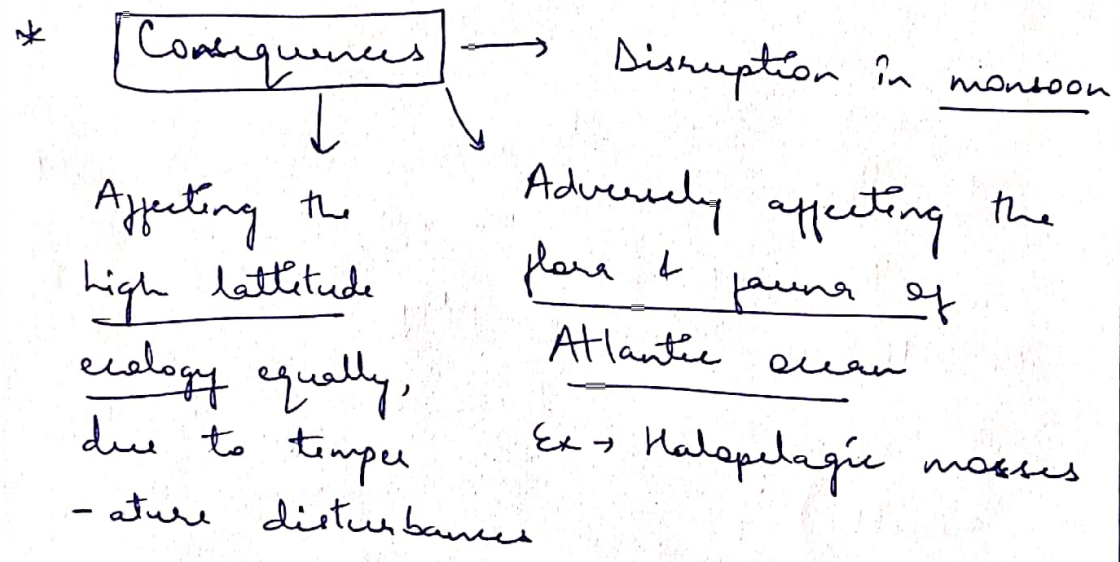 * Consequences → Disruption in monsoon
Affecting the
high lattitude
ecology equally,
due to temper
- ature disturbances
Adversely affecting the
flora & fauna of
Atlantic ocean
Ex → Halopelagic mosses